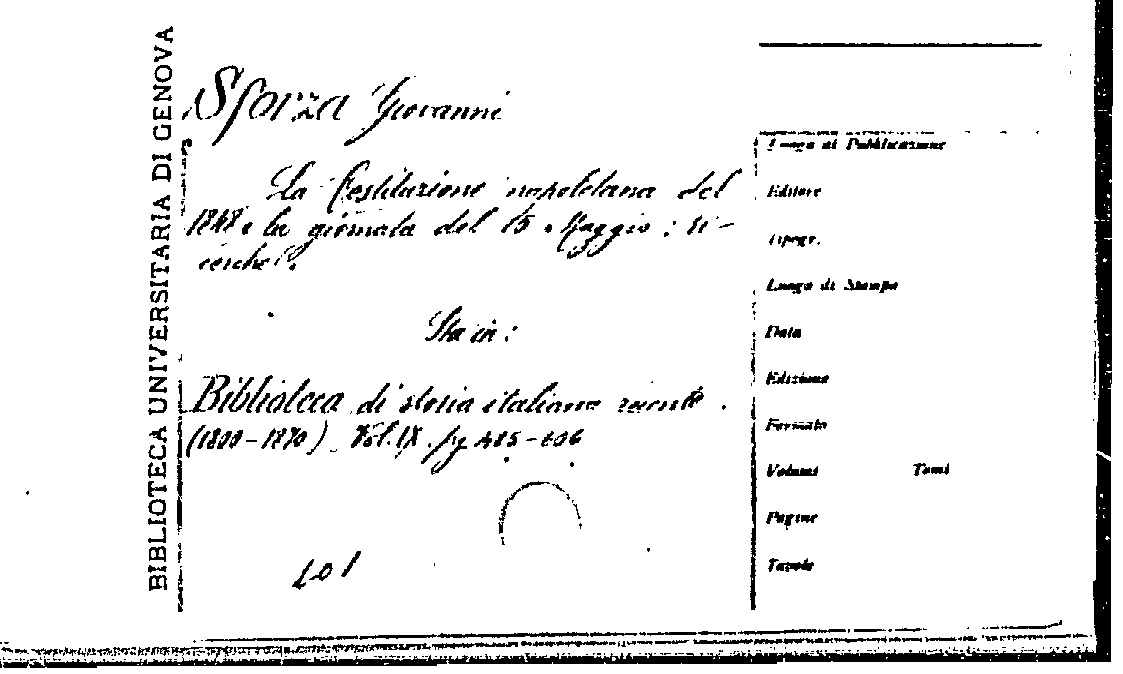 BIBLIOTECA UNIVERSITARIA DI GENOVA
Sforza Giovanni
La Costituzione napoletana del
1848 e la giornata del 15 Maggio: ri-
cerche.
Sta in:
Biblioteca di storia italiana recente.
(1800-1870) Vol. IX. pg 485-606
201
Luogo di Pubblicazione
Editore
Tipogr.
Luogo di Stampa
Data
Edizione
Formato
Volumi Tomi
Pagine
Tavole